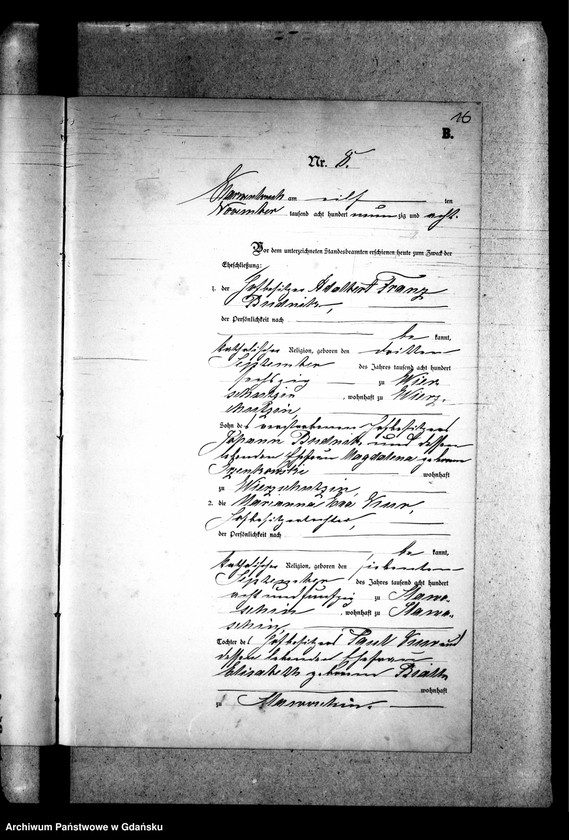 16
B.
Nr. 8.
am eilf ten
November tausend acht hundert neun zig und acht.
Vor dem unterzeichneten Standesbeamten erschienen heute zum Zweck der
Eheschließung:
1. der Hofbesitzer Adalbert Franz
Budnik,
der Persönlichkeit nach
be kannt,
katholischer Religion, geboren den dritten
September des Jahres tausend acht hundert
sechszig zu Wier-
schutzin, wohnhaft zu Wierz-
chutzin,
Sohn des verstorbenen Hofbesitzers
Johann Budnik und dessen
lebenden Ehefrau Magdalena geborene
wohnhaft
zu Wierzchutzin,
2. die Marianna Eva Kur,
Hofbesitzertochter,
der Persönlichkeit nach
be kannt,
katholischer Religion, geboren den siebenten
September des Jahres tausend acht hundert
acht und fünfzig zu
wohnhaft zu
Tochter des Hofbesitzers Paul Kur und
dessen lebenden Ehefrau
Elisabeth geborenen
wohnhaft
zu
Archiwum Państwowe w Gdańsku